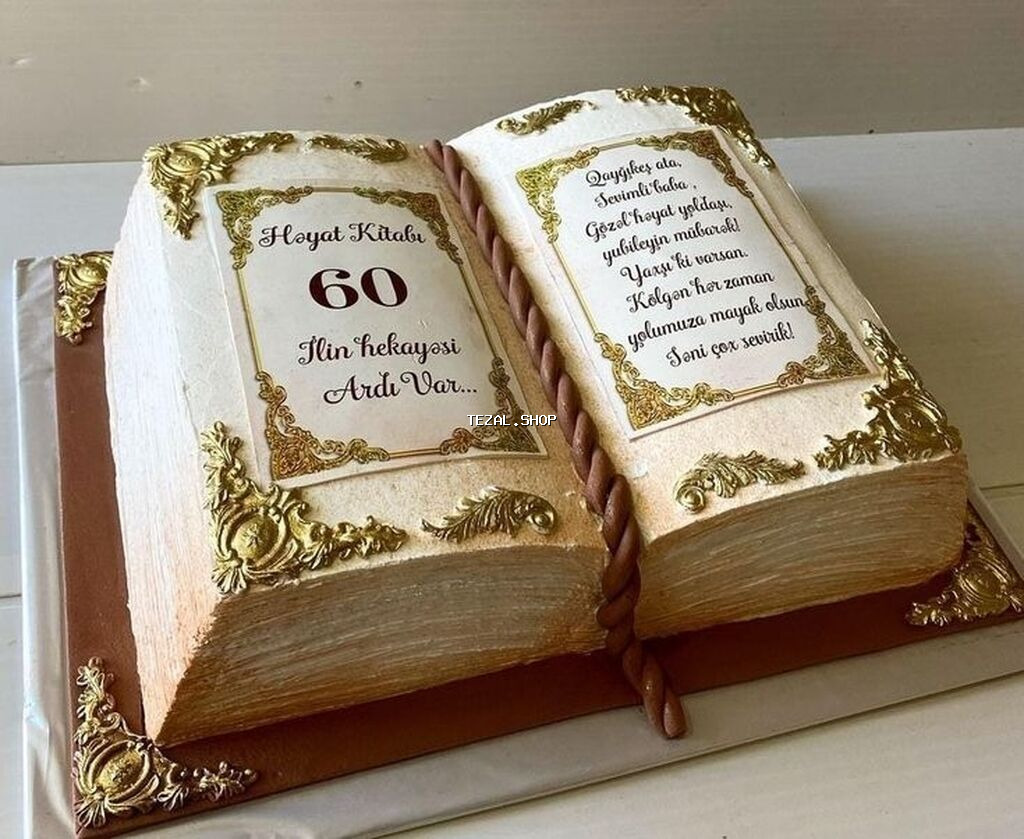 Həyat Kitabı
60
İlin hekayəsi
Ardı Var...
Qayğıkeş ata,
Sevimli baba,
Gözəl həyat yoldaşı,
yubileyin mübarək!
Yaxşı ki varsan.
Kölgən hər zaman
yolumuza mayak olsun,
Səni çox sevirik!
TEZAL.SHOP